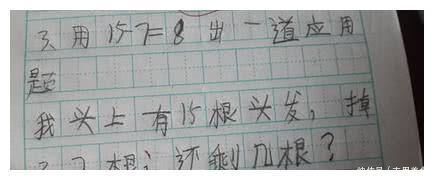 3、用15-7=8出一道应用
题
我头上有15根头发，掉
了7根，还剩几根？